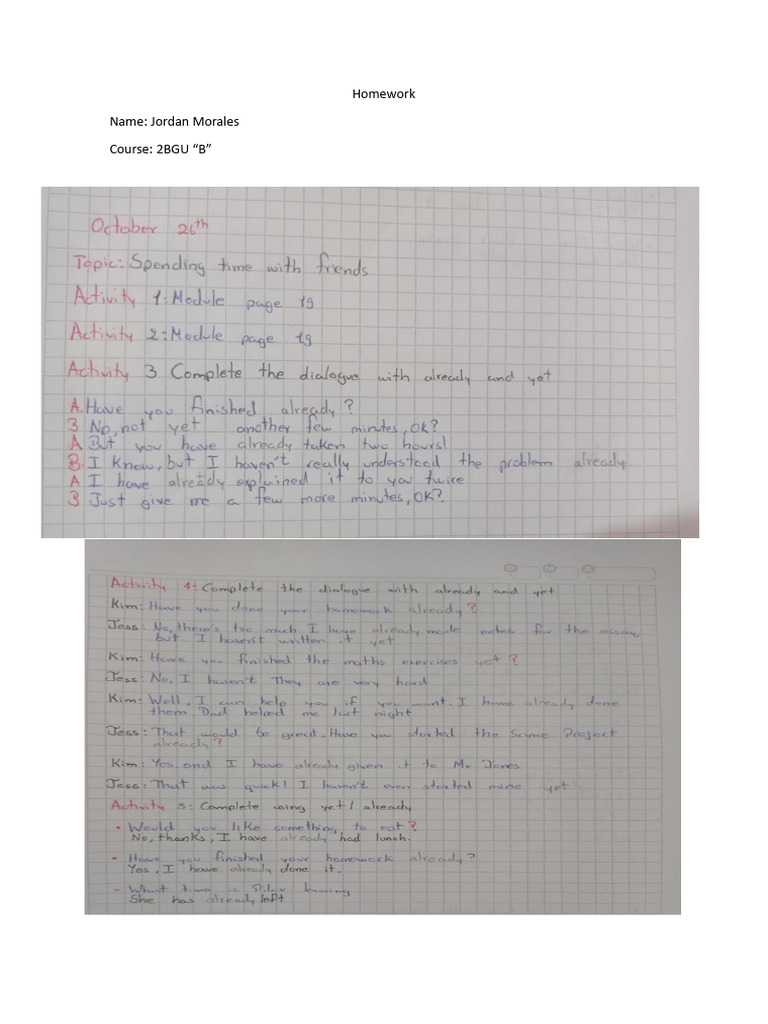 Homework
Name: Jordan Morales
Course: 2BGU “B”
October 26th
Topic: Spending time with friends
Activity 1: Module page 19
Activity 2: Module page 19
Activity 3 Complete the dialogue with already and yet
A. Have you finished already?
B No, not yet another few minutes, OK?
A But you have already taken two hours!
B. I know, but I haven't really understood the problem already
A I have already explained it to you twice
B Just give me a few more minutes, OK?
Activity 4: Complete the dialogue with already and yet
Kim: Have you done your homework already?
Jess: No, there's too much. I have already made notes for the essay
but I haven't written it yet
Kim: Have you finished the maths exercises yet?
Jess: No, I haven't They are very hard
Kim: Well, I can help you if you want. I have already done
them. Dad helped me last night
Jess: That would be great. Have you started the Science Project
already?
Kim: Yes, and I have already given it to Mr Jones
Jess: That was quick! I haven't even started mine yet!
Activity 5: Complete using yet / already
• Would you like something to eat?
No, thanks, I have already had lunch.
• Have you finished your homework already?
Yes, I have already done it.
- What time is leaving
She has already left